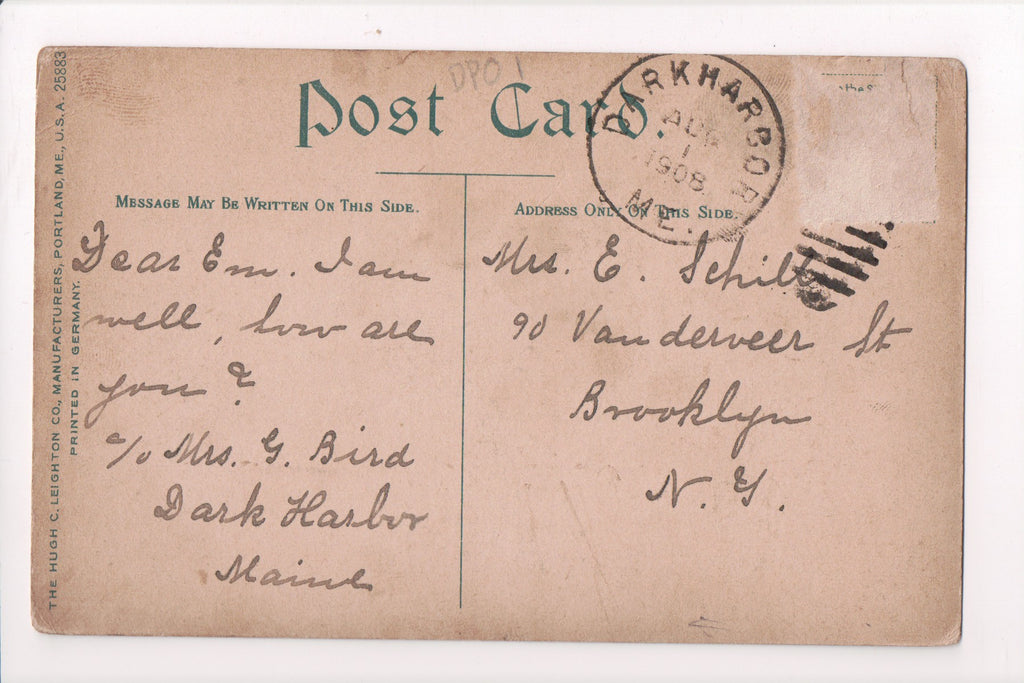 DPO 1
Post Card.
DARKHARBOR
AUG
1
1908
ME.
THE HUGH C. LEIGHTON CO., MANUFACTURERS, PORTLAND, ME., U.S.A. 25883
PRINTED IN GERMANY.
MESSAGE MAY BE WRITTEN ON THIS SIDE.
Dear Em. I am
well, how are
you?
c/o Mrs. G. Bird
Dark Harbor
Maine
ADDRESS ONLY ON THIS SIDE.
Mrs. E. Schill
90 Vanderveer St
Brooklyn
N. Y.